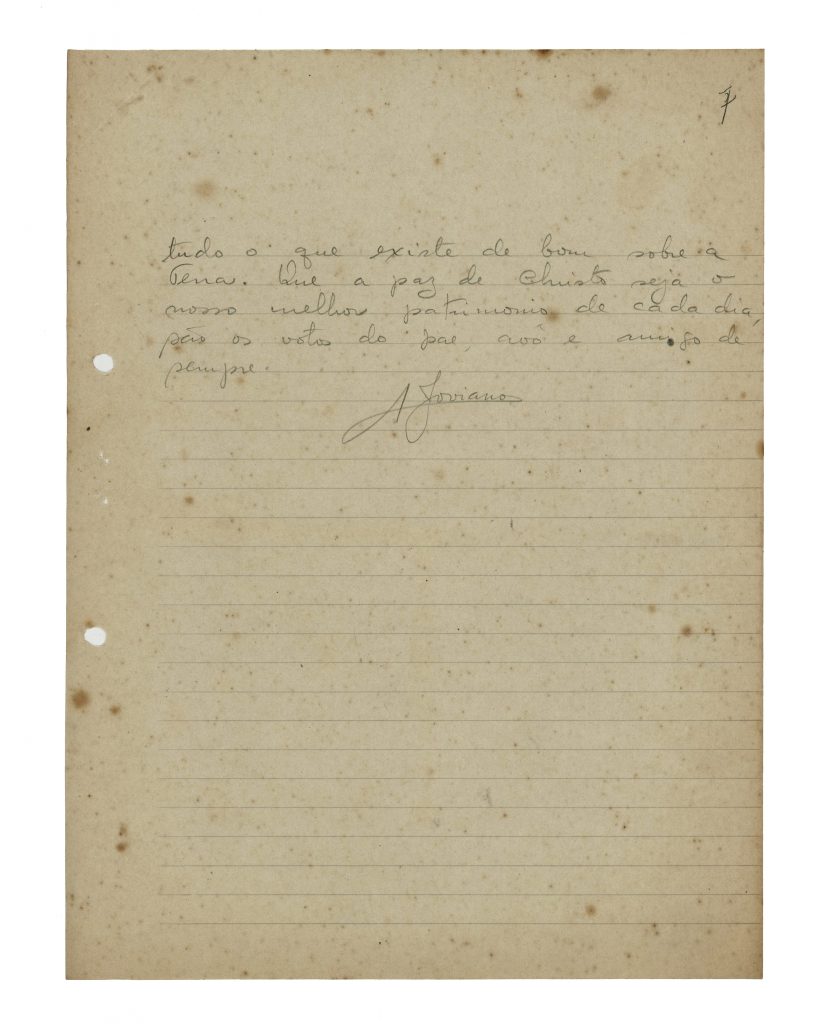 7
tudo o que existe de bom sobre a
Terra. Que a paz de Christo seja o
nosso melhor patrimonio de cada dia,
são os votos do pae, avô e amigo de
sempre.
A Joviano